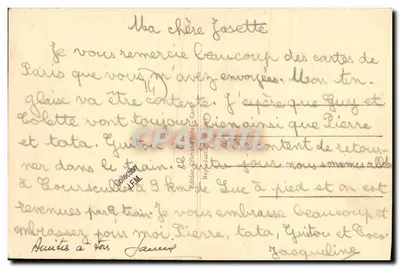 Ma chère Josette
Je vous remercie beaucoup des cartes de
Paris que vous m'avez envoyées. Mon An-
glaise va être contente. J'espère que Guy et
Colette vont toujours bien ainsi que Pierre
et tata. Guitou content de retour-
ner dans le train. L'autre jour nous sommes allés
à Courseulles à 9 km de Luc à pied et on est
revenues par train. Je vous embrasse beaucoup et
embrassez pour moi Pierre, tata, Guitou et Coco.
Jacqueline
Amitiés à tous
CAPRI
Collection